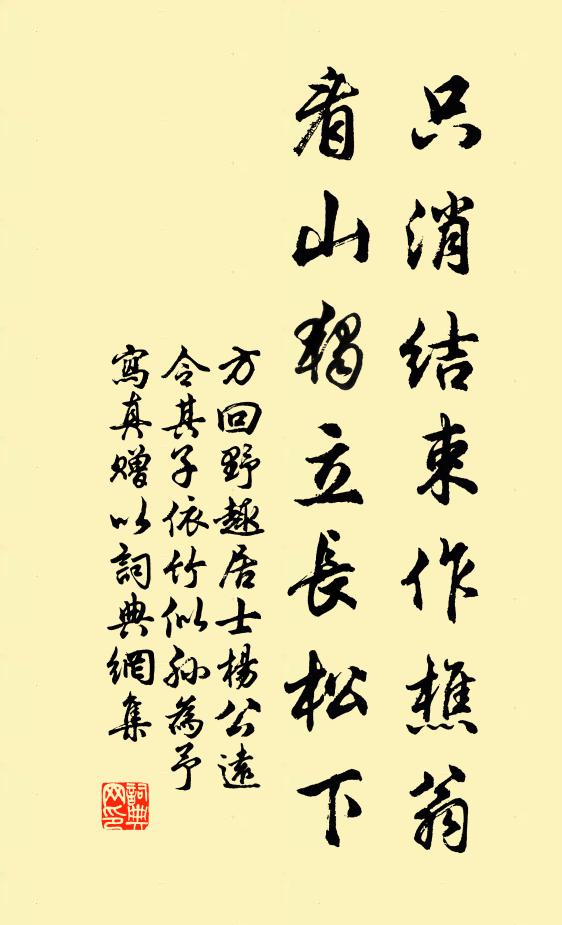 只消結束作樵翁
看山獨立長松下
方回野趣居士楊公遠
令其子依竹似孫為予
寫真贈以詞典網集
詞典网印